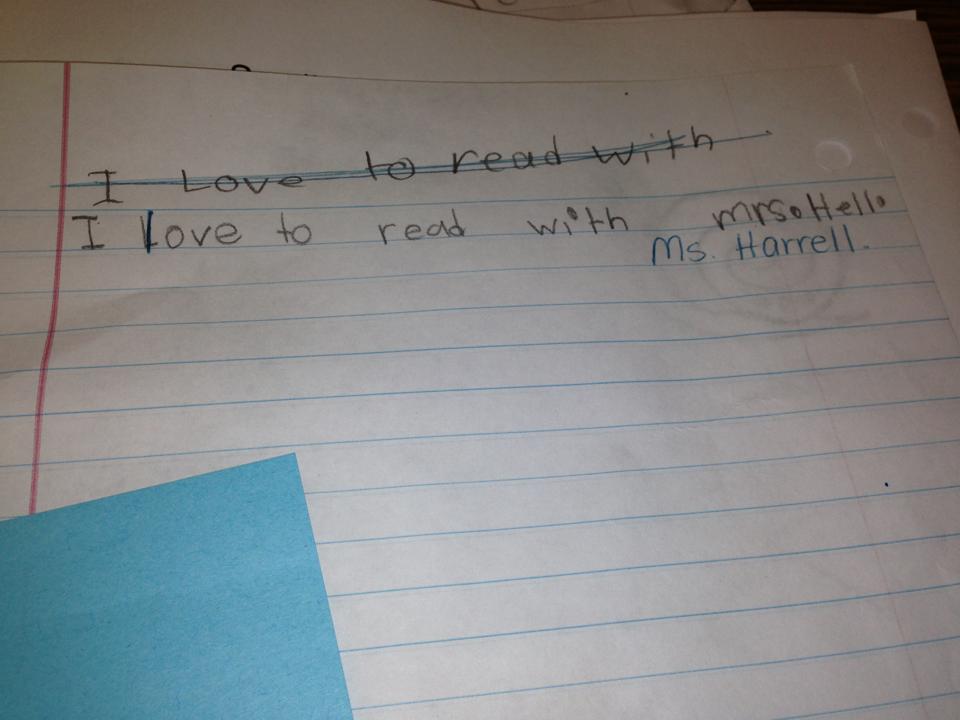 I Love to read with
I love to read with mrs. Hello
Ms. Harrell.